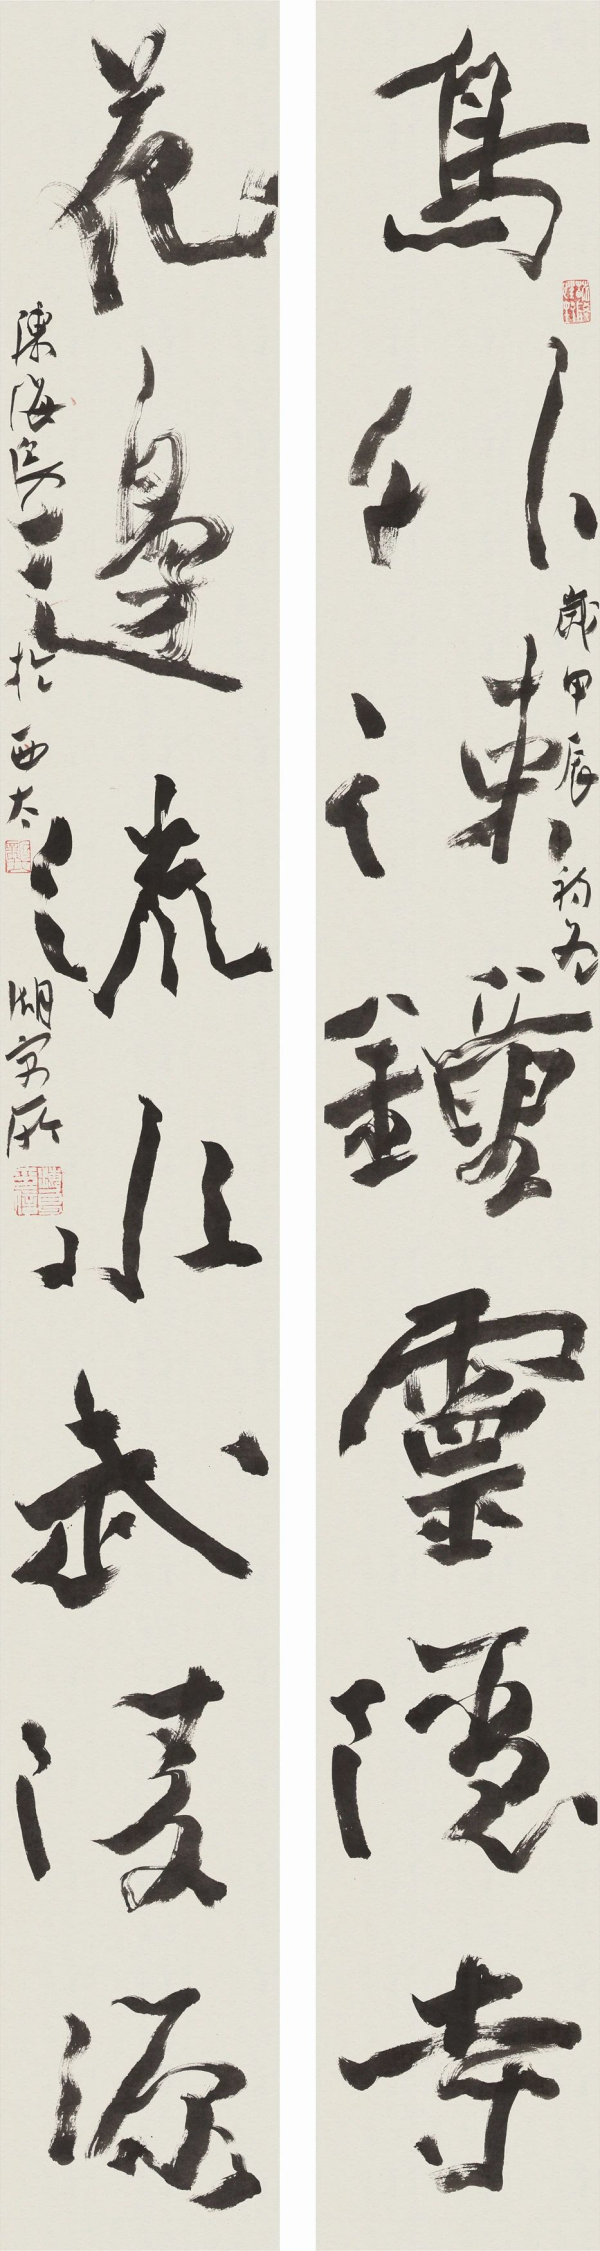 鳥外疎鐘靈隱寺
歲甲辰初冬
花邊流水武陵源
陳海良於西太湖寓所